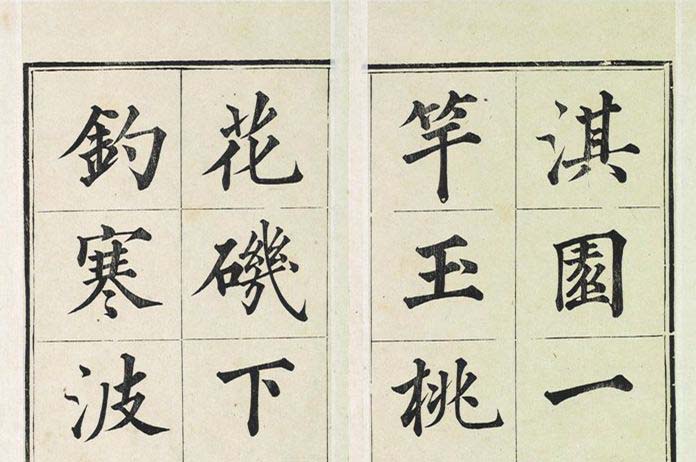 淇園一
竿玉桃
花磯下
釣寒波